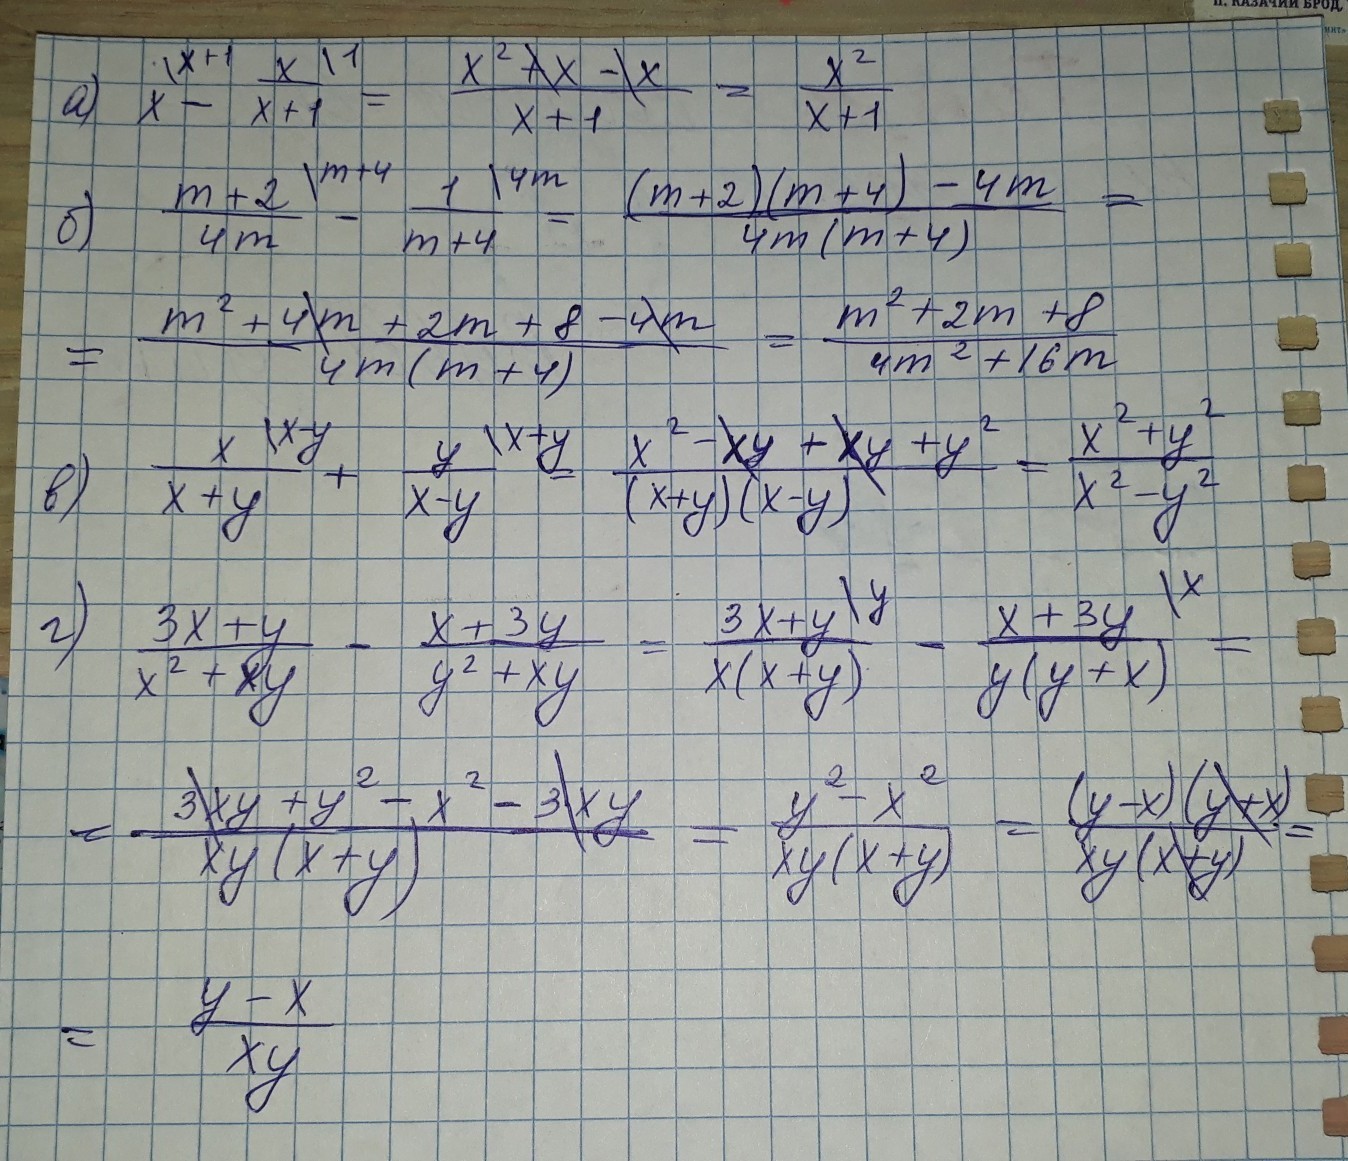 п. КАЗАЧИЙ БРОД,
а) x\x+1 − x/(x+1)\1 = (x² + x − x)/(x+1) = x²/(x+1)
б) (m+2)/(4m)\m+4 − 1/(m+4)\4m = ((m+2)(m+4) − 4m)/(4m(m+4)) =
= (m² + 4m + 2m + 8 − 4m)/(4m(m+4)) = (m² + 2m + 8)/(4m² + 16m)
в) x/(x+y)\x−y + y/(x−y)\x+y = (x² − xy + xy + y²)/((x+y)(x−y)) = (x² + y²)/(x² − y²)
г) (3x+y)/(x² + xy) − (x+3y)/(y² + xy) = (3x+y)/(x(x+y))\y − (x+3y)/(y(y+x))\x =
= (3xy + y² − x² − 3xy)/(xy(x+y)) = (y² − x²)/(xy(x+y)) = ((y−x)(y+x))/(xy(x+y)) =
= (y − x)/(xy)